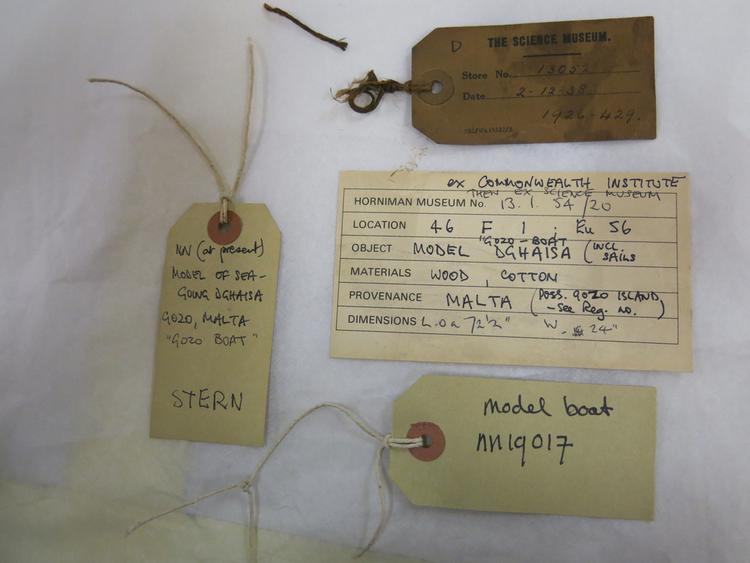 D
THE SCIENCE MUSEUM.
Store No. 13052
Date 2-12-38
1926-429.
ex COMMONWEALTH INSTITUTE
THEN EX SCIENCE MUSEUM
HORNIMAN MUSEUM No. 13.1.54/20
LOCATION 46 F 1 : Eu 56
"GOZO-BOAT
OBJECT MODEL DGHAISA (INCL. SAILS
MATERIALS WOOD, COTTON
PROVENANCE MALTA (POSS. GOZO ISLAND - See Reg. no.)
DIMENSIONS L.o.a 72½" W. 24"
NN (at present)
MODEL OF SEA-
GOING DGHAISA
GOZO, MALTA
"GOZO BOAT"
STERN
Model boat
nn19017